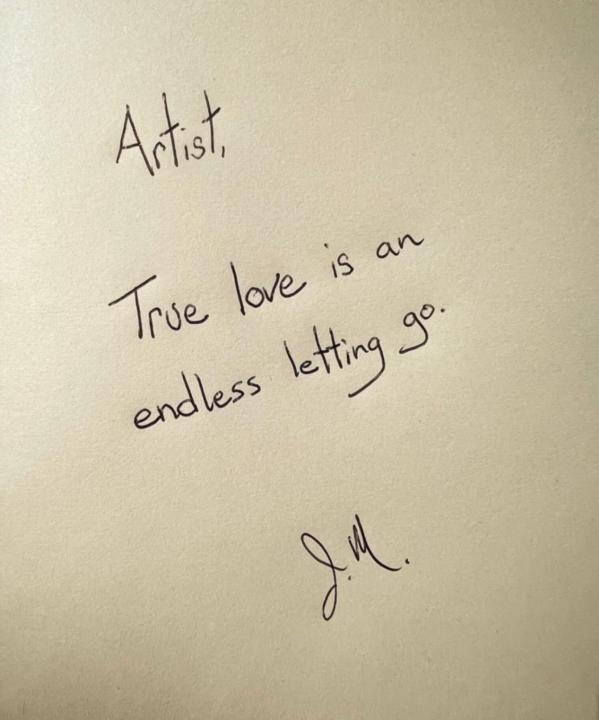 Artist,
True love is an
endless letting go.
J.M.